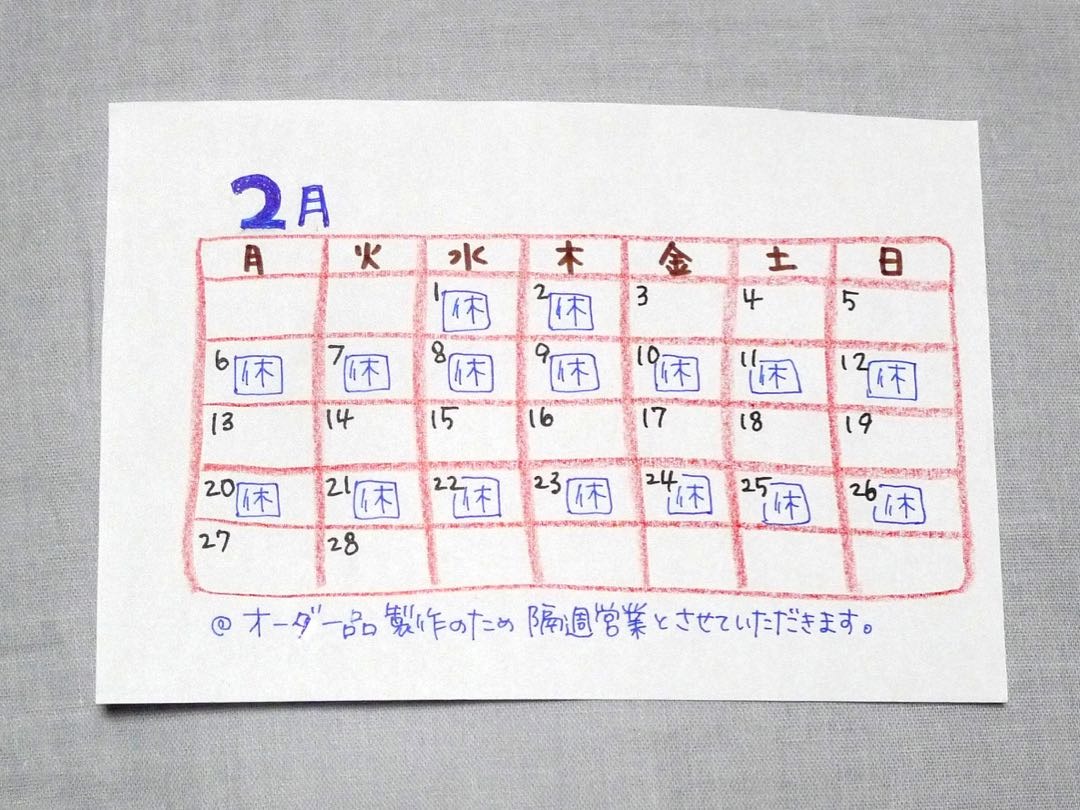 2月
月 火 水 木 金 土 日
1 休 2 休 3 4 5
6 休 7 休 8 休 9 休 10 休 11 休 12 休
13 14 15 16 17 18 19
20 休 21 休 22 休 23 休 24 休 25 休 26 休
27 28
@ オーダー品製作のため 隔週営業とさせていただきます。